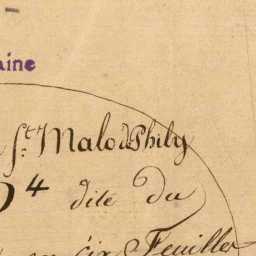 aine
St. Malo d Phily
D 4 dite du
en six Feuilles